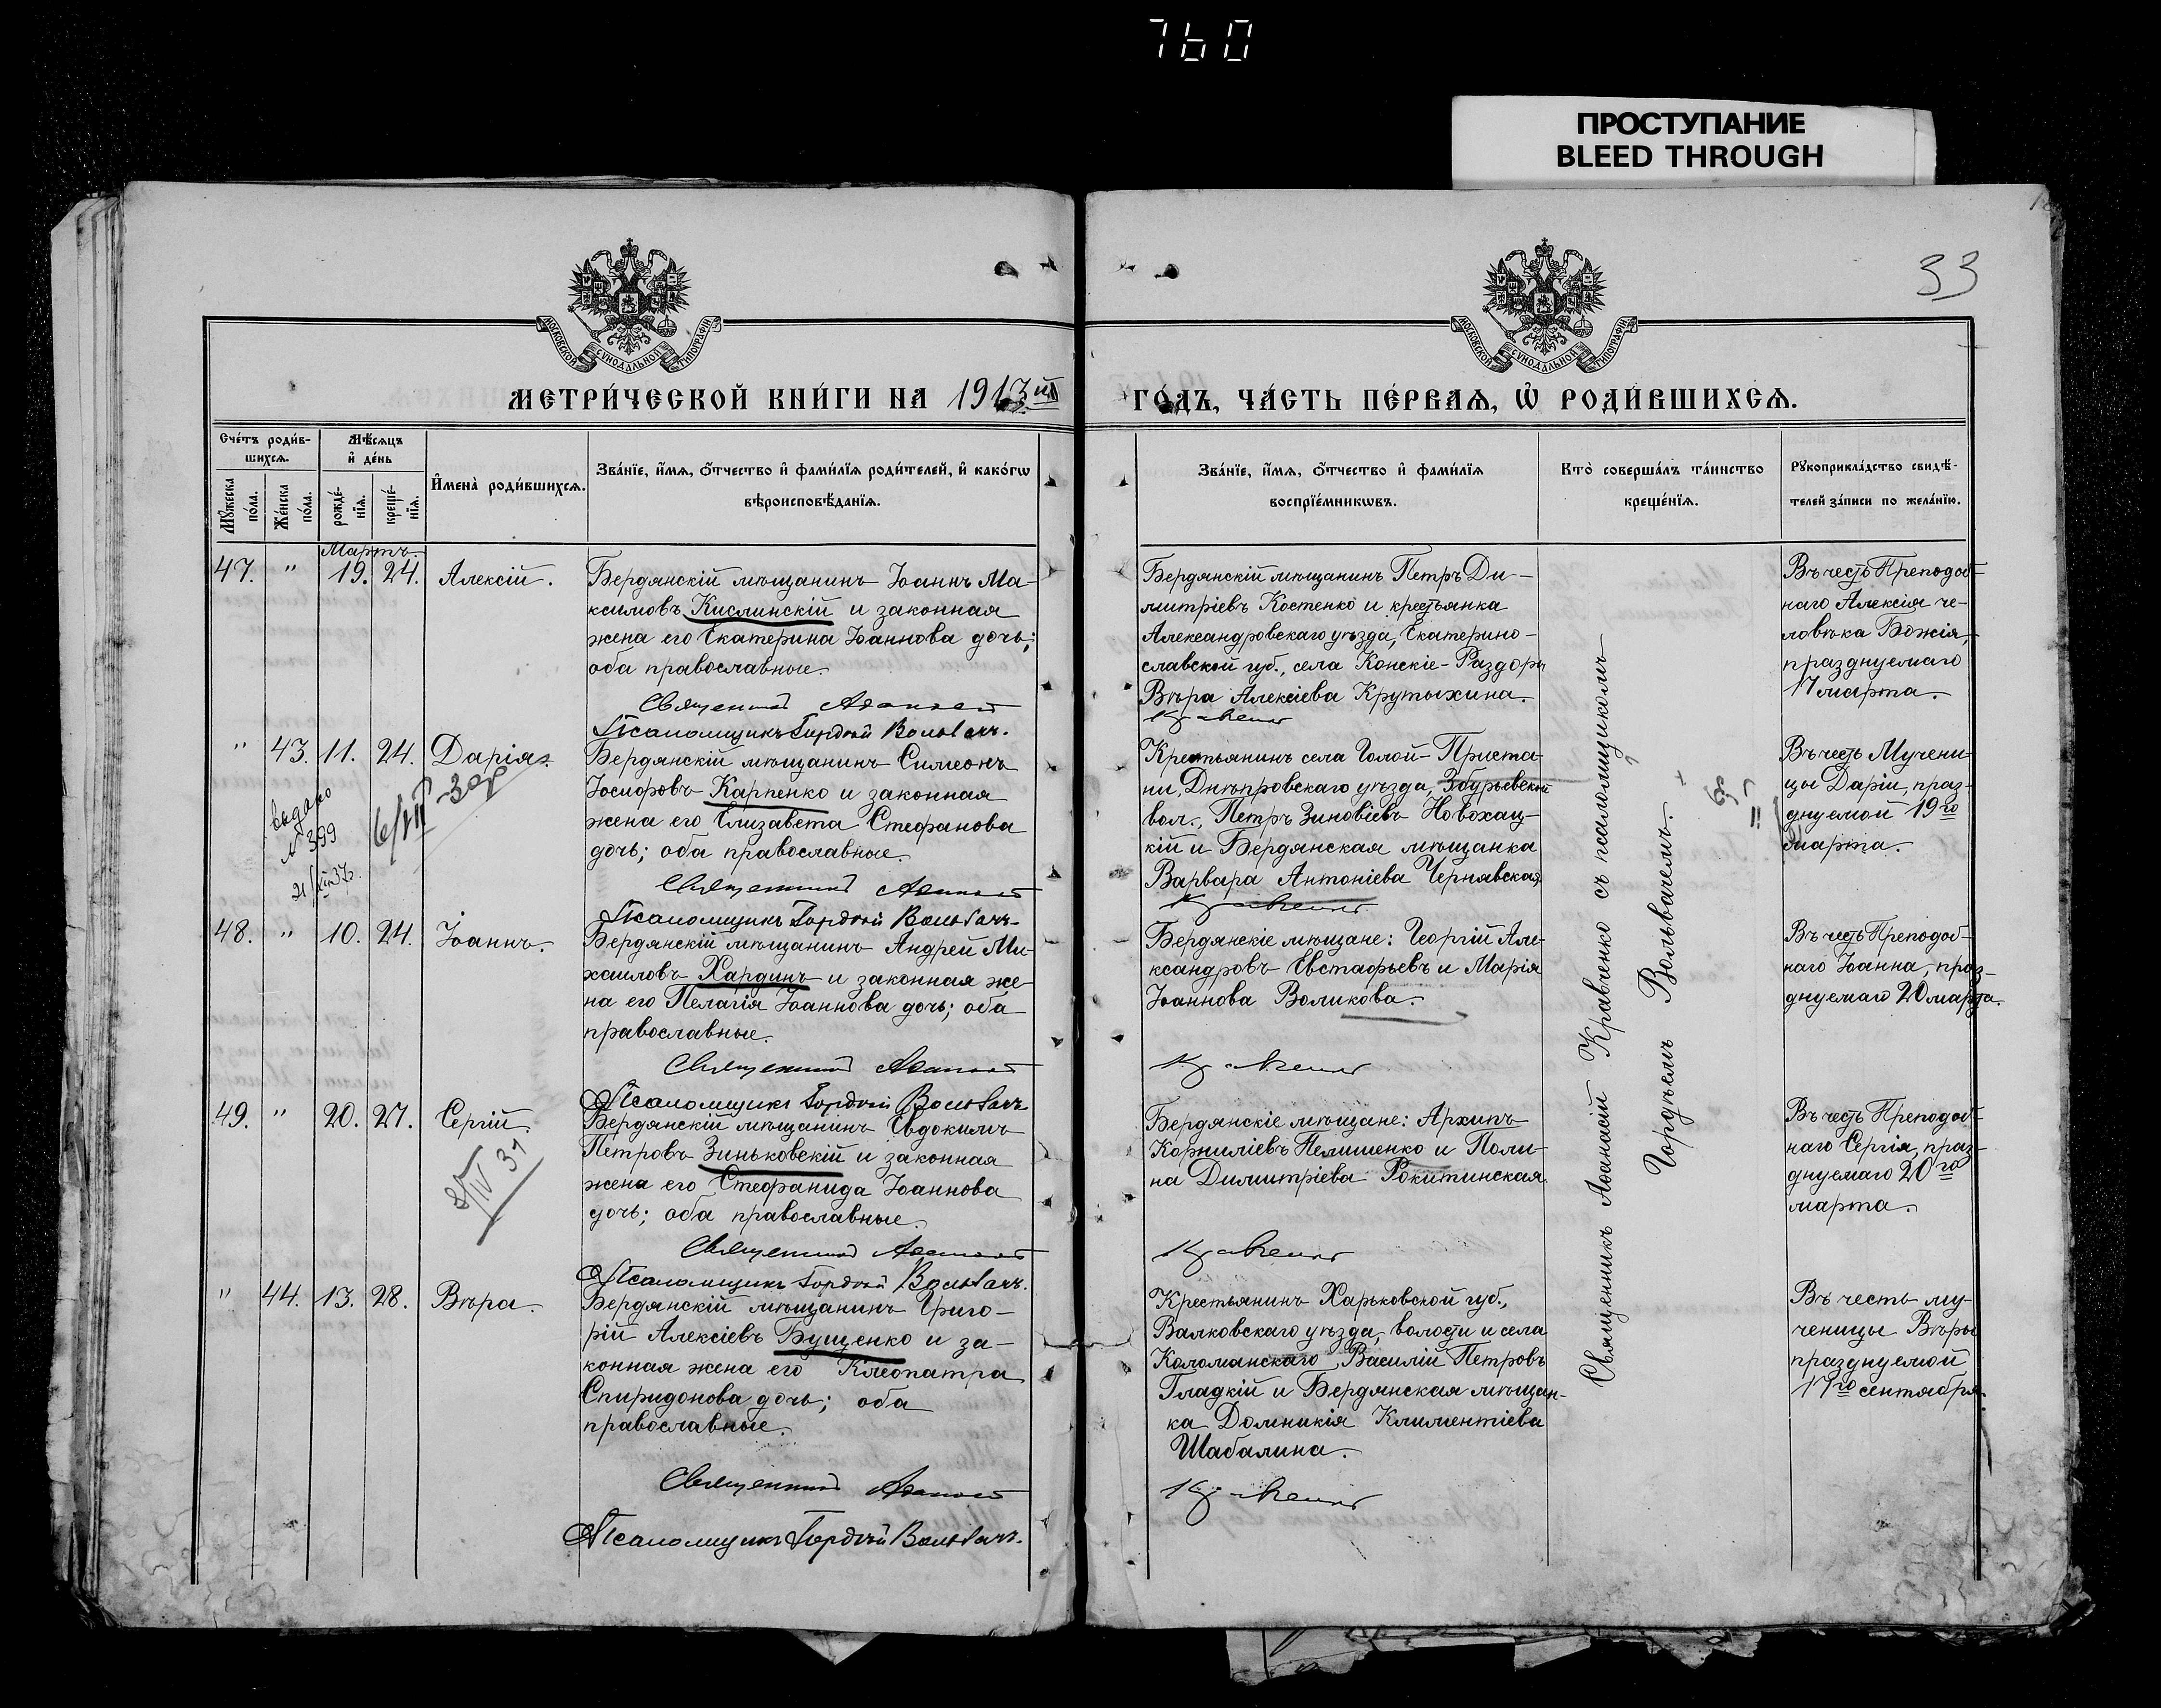 760
ПРОСТУПАНИЕ
BLEED THROUGH
33
МОСКОВСКОЙ СѴНОДАЛЬНОЙ ТИПОГРАФІИ
МОСКОВСКОЙ СѴНОДАЛЬНОЙ ТИПОГРАФІИ
МЕТРИ́ЧЕСКОЙ КНИ́ГИ НА 1913ій
ГО́ДЪ, ЧА́СТЬ ПЕ́РВАЯ, Ѡ РОДИ́ВШИХСЯ.
Счётъ роди́в-
шихся.
Мѣсяцъ
и де́нь
Мꙋжеска по́ла.
Же́нска по́ла.
рожде́-
нїя.
креще́-
нїя.
Имена̀ роди́вшихся.
Зва́нїе, и́мя, о́тчество и фами́лїя роди́телей, и како́гѡ
вѣроисповѣ́данїя.
Зва́нїе, и́мя, о́тчество и фами́лїя
воспрїе́мникѡвъ.
Кто̀ соверша́лъ та́инство
креще́нїя.
Рꙋкоприкла́дство свидѣ́-
телей за́писи по жела́нїю.
Мартъ.
47. " 19. 24. Алексій.
Бердянскій мѣщанинъ Іоаннъ Ма-
ксимовъ Кислинскій и законная
жена его Екатерина Іоаннова дочь;
оба православные.
Священникъ Аѳанасій
Псаломщикъ Гордѣй Вольвачъ.
Бердянскій мѣщанинъ Петръ Ди-
митріевъ Костенко и крестьянка
Александровскаго уѣзда, Екатерино-
славской губ., села Конскіе-Раздоры
Вѣра Алексіева Крутыхина.
Кравченко
Въ честь Преподоб-
наго Алексія че-
ловѣка Божія,
празднуемаго
17 марта.
" 43. 11. 24. Дарія.
выдано
№ 399
Бердянскій мѣщанинъ Симеонъ
Іосифовъ Карпенко и законная
жена его Елизавета Стефанова
дочь; оба православные.
Священникъ Аѳанасій
Псаломщикъ Гордѣй Вольвачъ
Крестьянинъ села Голой-Приста-
ни, Днѣпровскаго уѣзда, Збурьевской
вол., Петръ Зиновіевъ Новохац-
кій и Бердянская мѣщанка
Варвара Антоніева Чернявская.
Кравченко
Въ честь Мучени-
цы Даріи, праз-
днуемой 19го
марта.
48. " 10. 24. Іоаннъ.
Бердянскій мѣщанинъ Андрей Ми-
хаиловъ Хардинъ и законная же-
на его Пелагія Іоаннова дочь; оба
православные.
Священникъ Аѳанасій
Псаломщикъ Гордѣй Вольвачъ
Бердянскіе мѣщане: Георгій Але-
ксандровъ Евстафьевъ и Марія
Іоаннова Воликова.
Кравченко
Въ честь Преподоб-
наго Іоанна, праз-
днуемаго 20 марта.
49. " 20. 27. Сергій.
Бердянскій мѣщанинъ Евдокимъ
Петровъ Зиньковскій и законная
жена его Стефанида Іоаннова
дочь; оба православные.
Священникъ Аѳанасій
Псаломщикъ Гордѣй Вольвачъ.
Бердянскіе мѣщане: Архипъ
Корниліевъ Пелишенко и Поли-
на Димитріева Рокитинская.
Кравченко
Въ честь Преподоб-
наго Сергія, праз-
днуемаго 20го
марта.
" 44. 13. 28. Вѣра.
Бердянскій мѣщанинъ Григо-
рій Алексіевъ Бущенко и за-
конная жена его Клеопатра
Спиридонова дочь; оба
православные.
Священникъ Аѳанасій
Псаломщикъ Гордѣй Вольвачъ.
Крестьянинъ Харьковской губ.,
Валковскаго уѣзда, волости и села
Коломанскаго Василій Петровъ
Гладкій и Бердянская мѣщан-
ка Домникія Климентіева
Шабалина.
Кравченко
Въ честь му-
ченицы Вѣры
празднуемой
17го сентября.
Священникъ Аѳанасій Кравченко съ псаломщикомъ
Гордѣемъ Вольвачемъ.